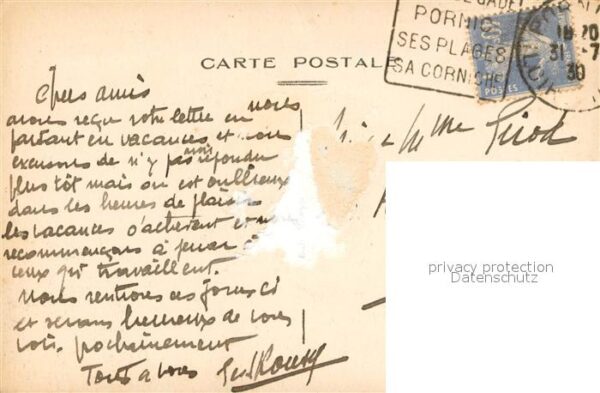 PORNIC
SES PLAGES
SA CORNICHE
18 20
31 -7
30
POSTES
CARTE POSTALE
Chers amis
avons reçu votre lettre en
partant en vacances et nous
excusons de n'y pas avoir répondu
plus tôt mais on est oublieux
dans les heures de plaisir
les vacances s'achèvent et nous
recommençons à penser à
ceux qui travaillent.
Nous rentrons ces jours ci
et serons heureux de vous
voir prochainement
Tout à vous
Mme Girod
privacy protection
Datenschutz